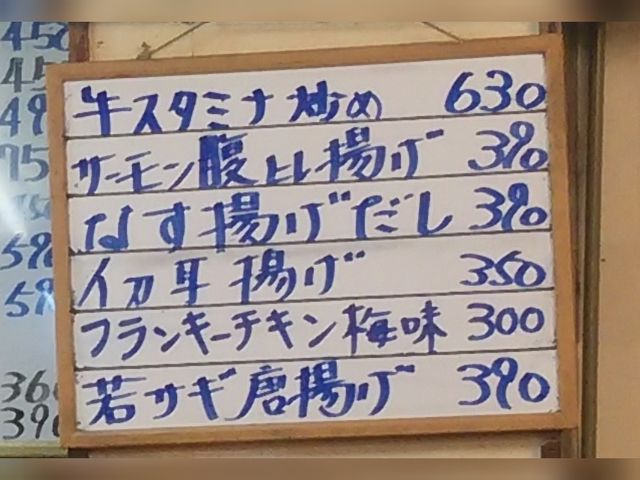 450
45
49
75
590
59
360
390
牛スタミナ炒め 630
サーモン腹とし揚げ 390
なす揚げだし 390
イカ耳揚げ 350
フランキーチキン梅味 300
若サギ唐揚げ 390